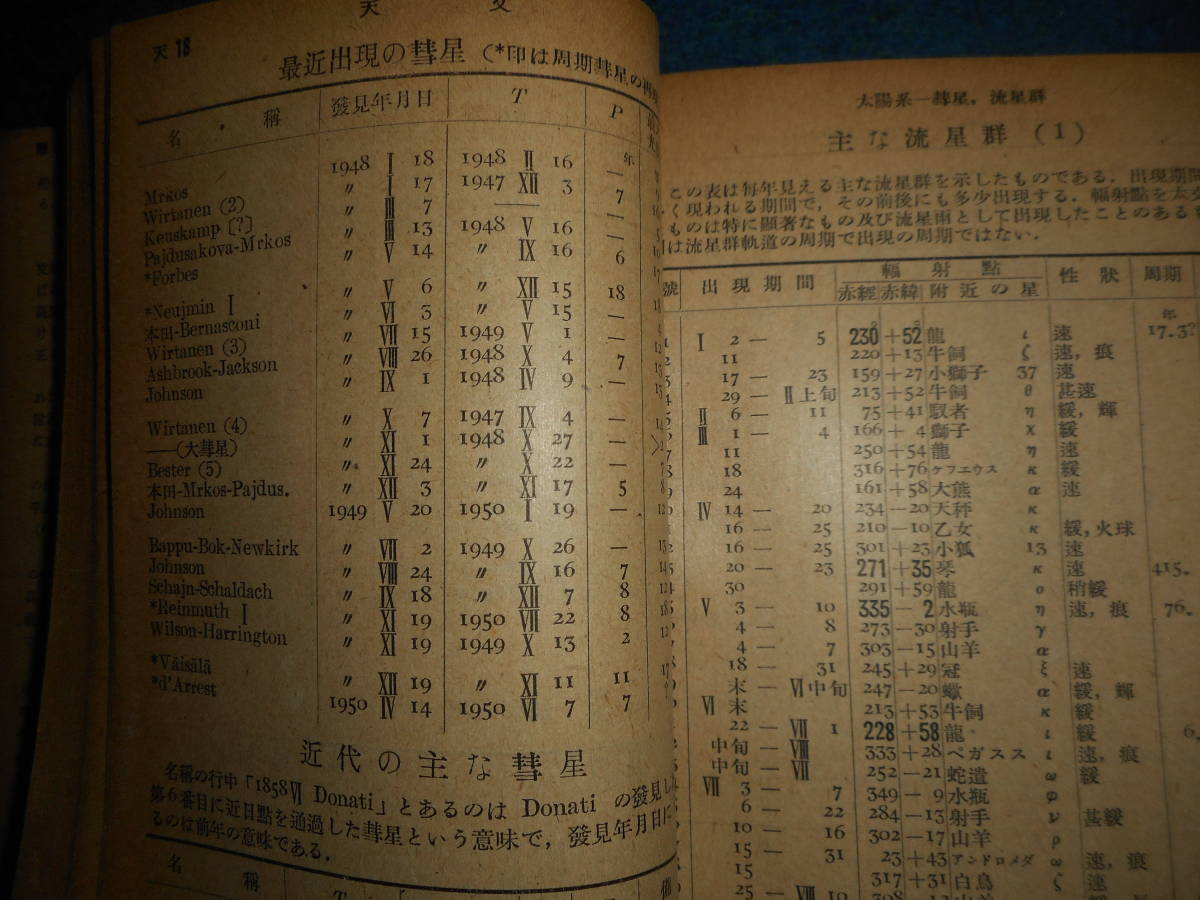 天 文
天 18
最近出現の彗星 (*印は周期彗星の
名 稱 發見年月日 T P
年
Mrkos 1948 I 18 1948 II 16 —
Wirtanen (2) 〃 I 17 1947 XII 3 7
Keuskamp [?] 〃 III 7 —
Pajdusakova-Mrkos 〃 III 13 1948 V 16 —
*Forbes 〃 V 14 〃 IX 16 6
*Neujmin I 〃 V 6 〃 XII 15 18
本田-Bernasconi 〃 VI 3 〃 V 15 —
Wirtanen (3) 〃 VII 15 1949 V 1 —
Ashbrook-Jackson 〃 VIII 26 1948 X 4 7
Johnson 〃 IX 1 1948 IV 9 —
Wirtanen (4) 〃 X 7 1947 IX 4 —
——(大彗星) 〃 XI 1 1948 X 27 —
Bester (5) 〃 XI 24 〃 X 22 —
本田-Mrkos-Pajdus. 〃 XII 3 〃 XI 17 5
Johnson 1949 V 20 1950 I 19 —
Bappu-Bok-Newkirk 〃 VII 2 1949 X 26 —
Johnson 〃 VIII 24 〃 IX 16 7
Schajn-Schaldach 〃 IX 18 〃 XII 7 8
*Reinmuth I 〃 XI 19 1950 VII 22 8
Wilson-Harrington 〃 XI 19 1949 X 13 2
*Väisälä 〃 XII 19 〃 XI 11 11
*d'Arrest 1950 IV 14 1950 VI 7 7
近代の主な彗星
名稱の行中「1858 VI Donati」とあるのは Donati の發見し
第6番目に近日點を通過した彗星という意味で，發見年月日に
るのは前年の意味である．
名 稱
T
太陽系—彗星，流星群
主な流星群 (1)
この表は毎年見える主な流星群を示したものである．出現期間
く現われる期間で，その前後にも多少出現する．輻射點を太
ものは特に顯著なもの及び流星雨として出現したことのある
は流星群軌道の周期で出現の周期ではない．
號 出現期間 輻射點 性狀 周期
赤經 赤緯 附近の星
年
1 I 2 — 5 230° +52° 龍 ι 速 17.3?
2 11 220 +13 牛飼 ζ 速，痕
3 17 — 23 159 +27 小獅子 37 速
4 29 — II上旬 213 +52 牛飼 θ 甚速
II 6 — 11 75 +41 馭者 η 緩，輝
III 1 — 4 166 + 4 獅子 χ 緩
11 250 +54 龍 η 速
18 316 +76 ケフエウス κ 緩
24 161 +58 大熊 α 速
IV 14 — 20 234 −20 天秤 κ
16 — 25 210 −10 乙女 κ 緩，火球
16 — 25 301 +23 小狐 13 速
20 — 23 271 +35 琴 κ 速 415.
30 291 +59 龍 ο 稍緩
V 3 — 10 335 − 2 水瓶 η 速，痕 76.
4 — 8 273 −30 射手 γ
4 — 7 303 −15 山羊 α
18 — 31 245 +29 冠 ξ 速
末 — VI中旬 247 −20 蠍 α 緩，輝
VI 末 213 +53 牛飼 κ 緩
22 — VII 1 228 +58 龍 ι 緩 6.
中旬 — VIII 333 +28 ペガスス ι 速，痕
中旬 — VII 252 −21 蛇遣 ω 緩
VII 3 — 7 349 − 9 水瓶 φ
6 — 22 284 −13 射手 ν 甚緩
10 — 16 302 −17 山羊 ρ
15 — 31 23 +43 アンドロメダ ω 速，痕
15 317 +31 白鳥 ζ 速
25 — VIII 10